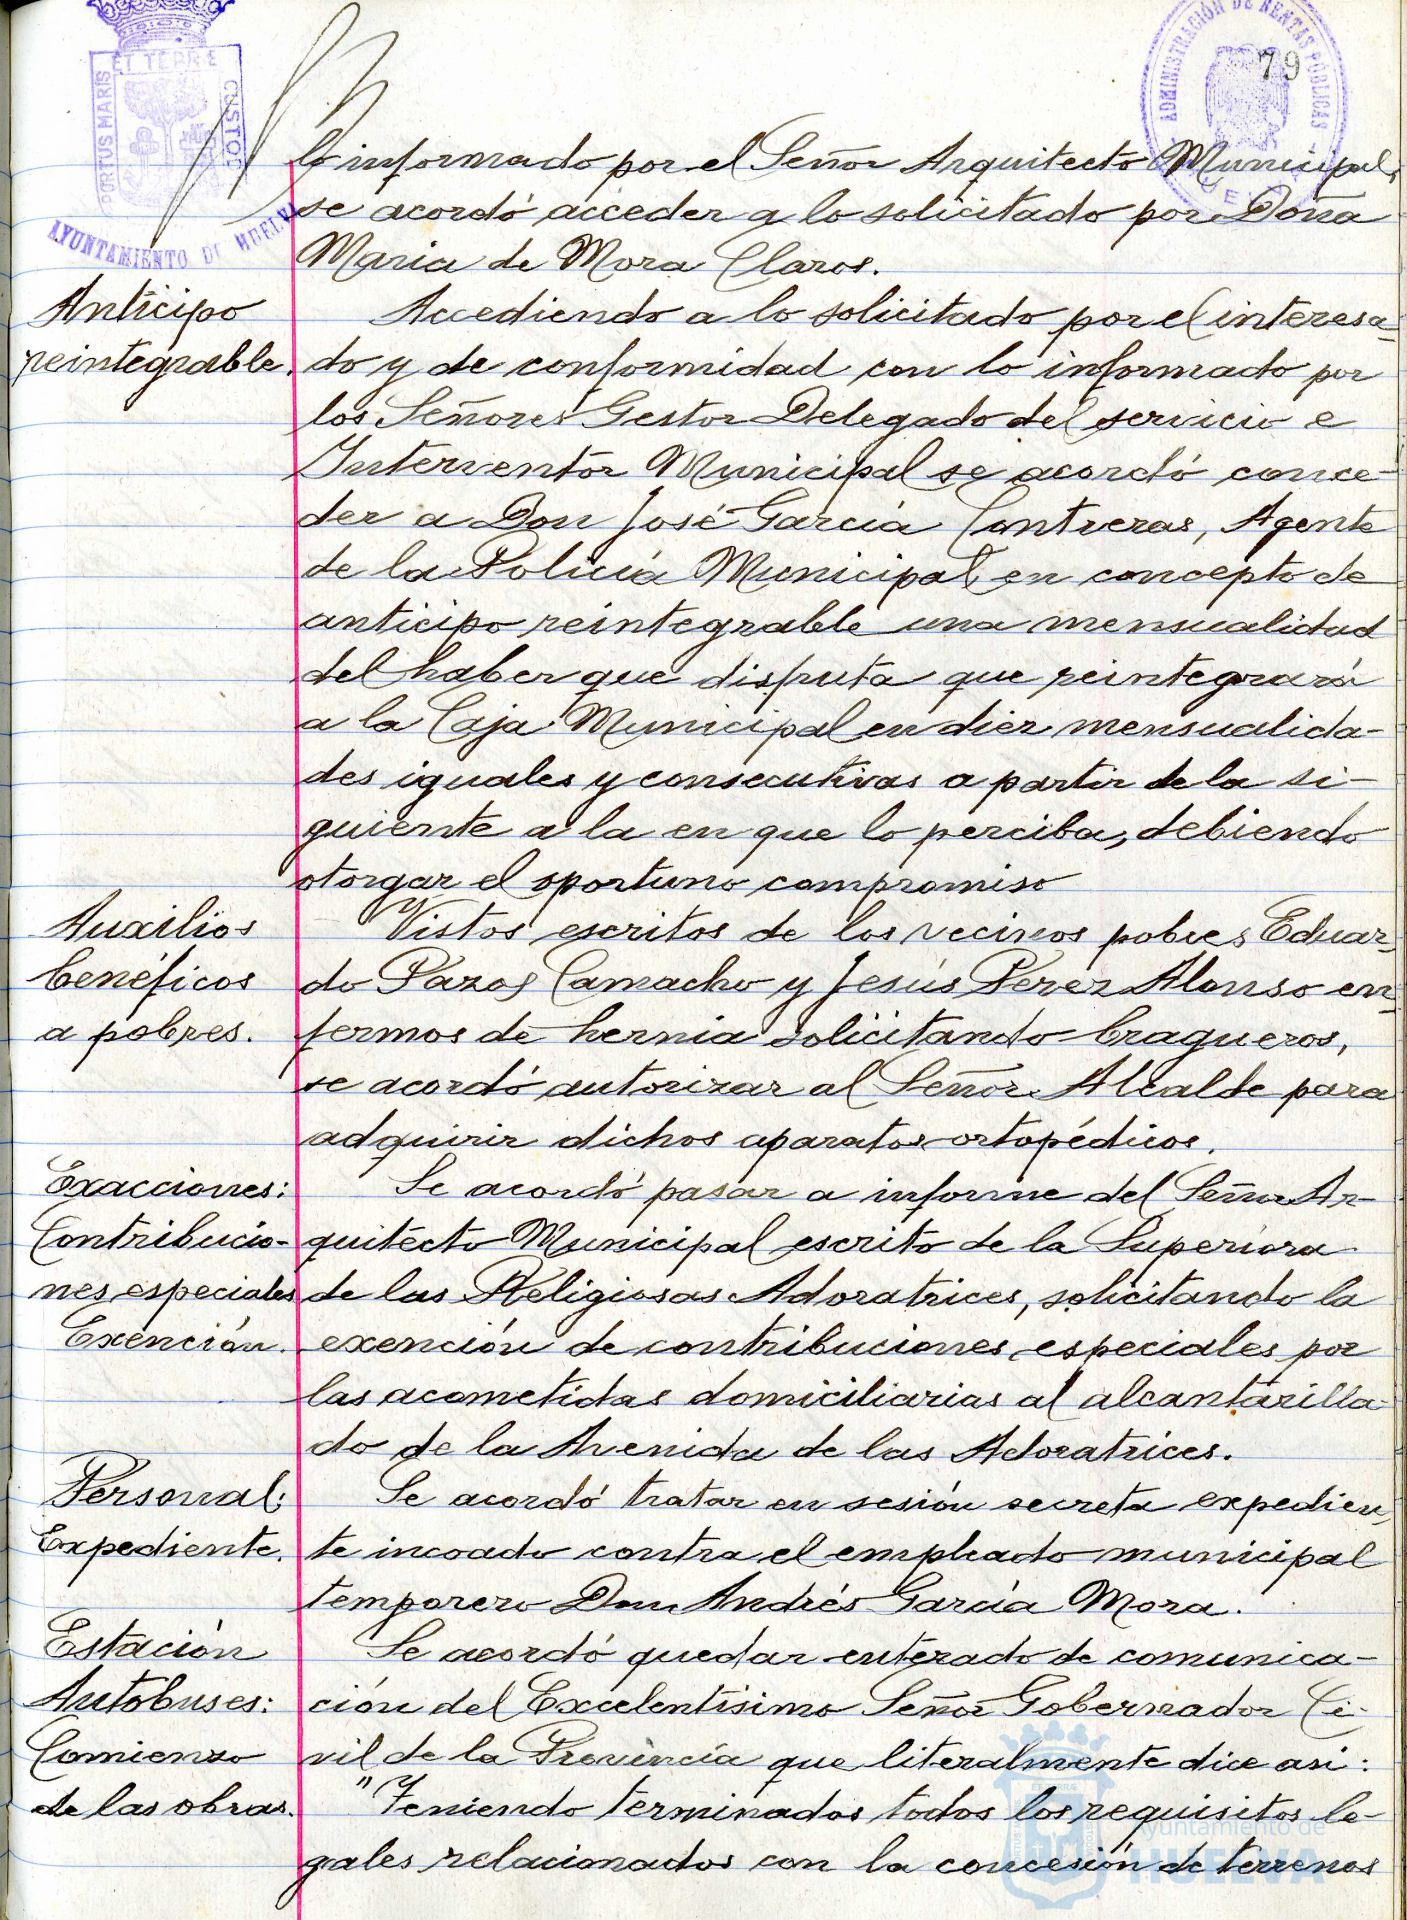 ET TERRE
PORTUS MARIS
CUSTOS
AYUNTAMIENTO DE HUELVA
ADMINISTRACIÓN DE RENTAS PÚBLICAS
79
lo informado por el Señor Arquitecto Municipal,
se acordó acceder a lo solicitado por Doña
Maria de Mora Claros.
Anticipo
reintegrable.
Accediendo a lo solicitado por el interesa-
do y de conformidad con lo informado por
los Señores Gestor Delegado del servicio e
Interventor Municipal se acordó conce-
der a Don José García Contreras, Agente
de la Policía Municipal en concepto de
anticipo reintegrable una mensualidad
del haber que disfruta que reintegrará
a la Caja Municipal en diez mensualida-
des iguales y consecutivas a partir de la si-
guiente a la en que lo perciba, debiendo
otorgar el oportuno compromiso
Auxilios
benéficos
a pobres.
Vistos escritos de los vecinos pobres Eduar-
do Pazos Camacho y Jesús Perez Alonso en-
fermos de hernia solicitando bragueros,
se acordó autorizar al Señor Alcalde para
adquirir dichos aparatos ortopédicos.
Exacciones:
Contribucio-
nes especiales
Exención.
Se acordó pasar a informe del Señor Ar-
quitecto Municipal escrito de la Superiora
de las Religiosas Adoratrices, solicitando la
exención de contribuciones especiales por
las acometidas domiciliarias al alcantarilla-
do de la Avenida de las Adoratrices.
Personal:
Expediente.
Se acordó tratar en sesión secreta expedien-
te incoado contra el empleado municipal
temporero Don Andrés García Mora.
Estación
Autobuses:
Comienzo
de las obras.
Se acordó quedar enterado de comunica-
ción del Excelentísimo Señor Gobernador Ci-
vil de la Provincia que literalmente dice asi:
"Teniendo terminados todos los requisitos le-
gales relacionados con la concesión de terrenos
Ayuntamiento de
HUELVA